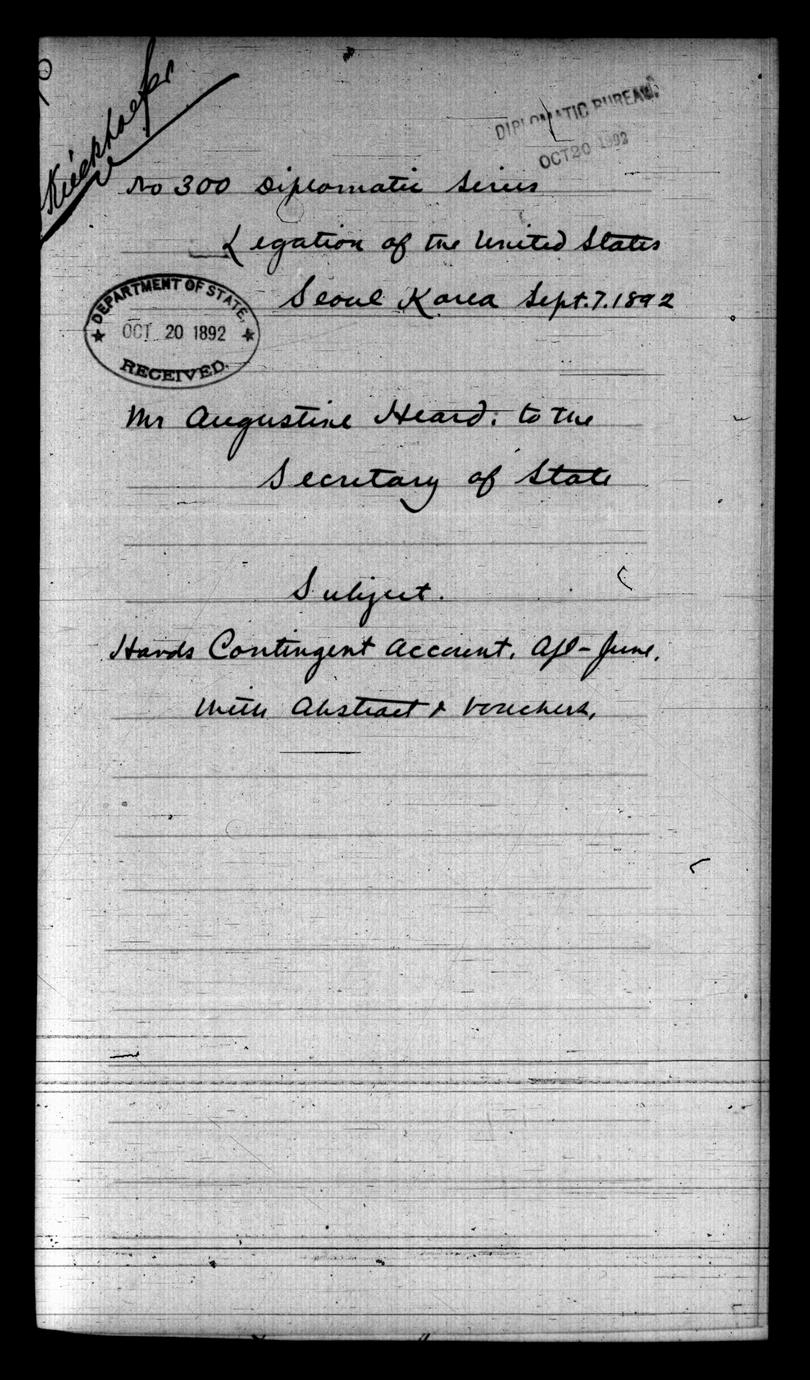 Kieckhoefer
DIPLOMATIC BUREAU,
OCT 20 1892
No 300 Diplomatic Series
Legation of the United States
Seoul Korea Sept. 7. 1892
DEPARTMENT OF STATE.
OCT 20 1892
RECEIVED.
Mr Augustine Heard: to the
Secretary of State
Subject.
Hands Contingent Account. Apl-June.
With Abstract & Vouchers.